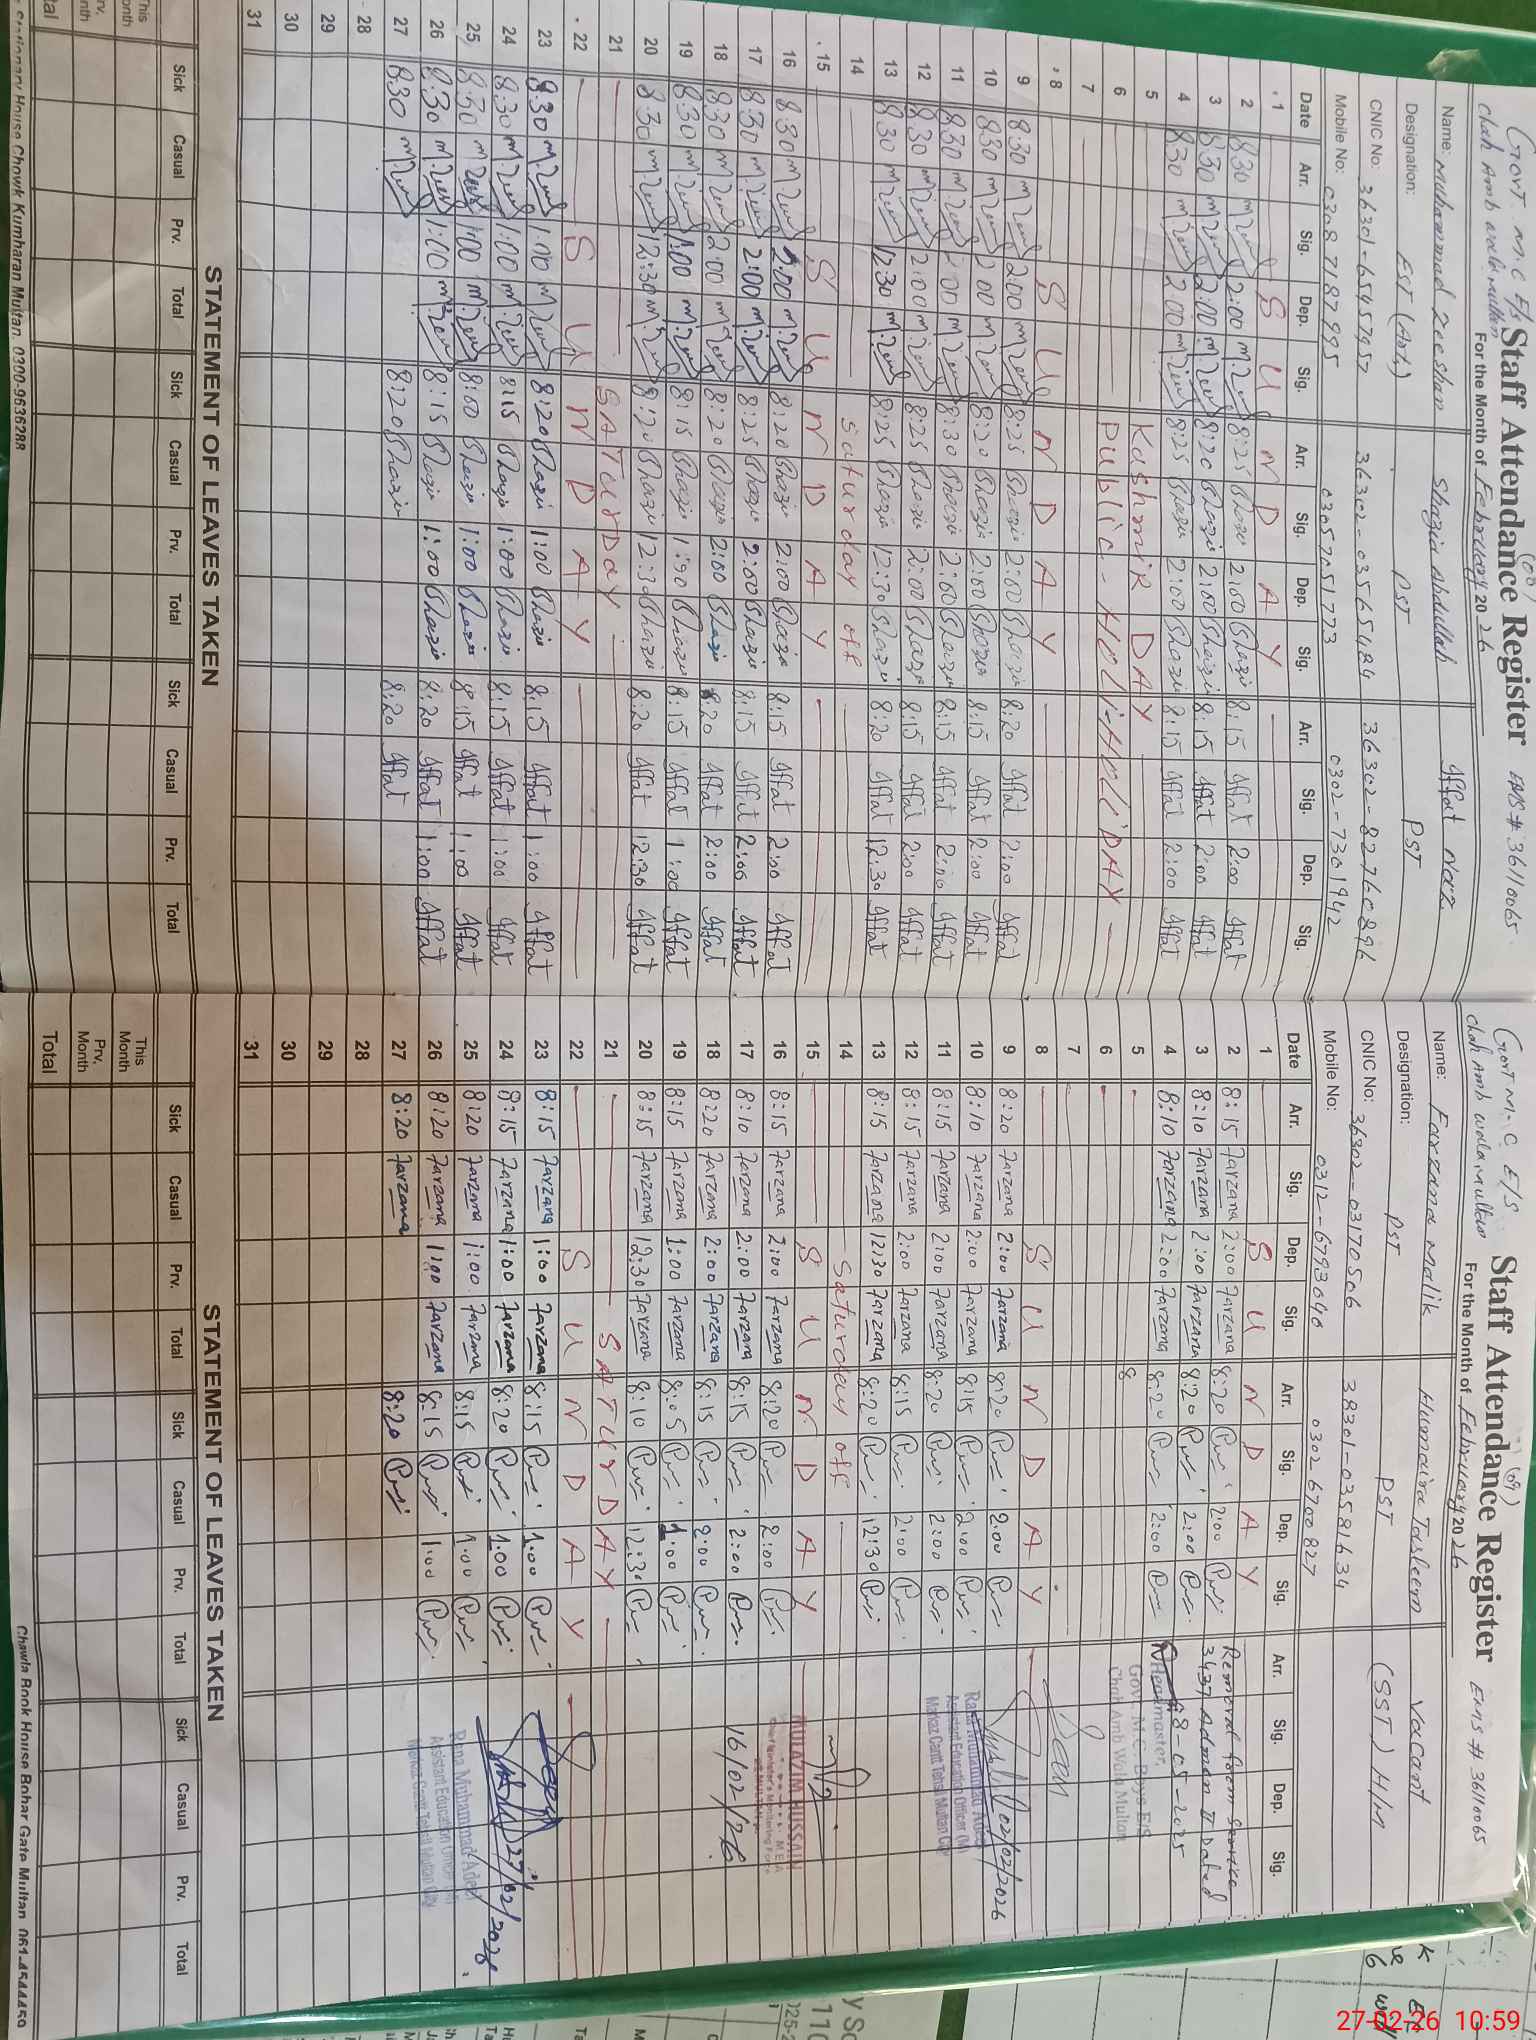 Govt. M.C E/S
chah Amb wala multan
Staff Attendance Register
EMIS # 36110065
For the Month of February 2026
Name: Muhammad Zeeshan Shazia Abdullah Iffat Naz
Designation: EST (Arts) PST PST
CNIC No: 36301-6545795-7 36302-0356548-4 36302-8276089-6
Mobile No: 0308 7187995 03057051773 0302-7301942
Date Arr. Sig. Dep. Sig. Arr. Sig. Dep. Sig. Arr. Sig. Dep. Sig.
1 S U N D A Y
2 8:30 2:00 8:25 Shazia 2:00 Shazia 8:15 Iffat 2:00 Iffat
3 8:30 2:00 8:20 Shazia 2:00 Shazia 8:15 Iffat 2:00 Iffat
4 8:30 2:00 8:25 Shazia 2:00 Shazia 8:15 Iffat 2:00 Iffat
5 Kashmir DAY
6 Public - HOLI-HOLIDAY
7
8 S U N D A Y
9 8:30 2:00 8:25 Shazia 2:00 Shazia 8:20 Iffat 2:00 Iffat
10 8:30 2:00 8:20 Shazia 2:00 Shazia 8:15 Iffat 2:00 Iffat
11 8:30 2:00 8:30 Shazia 2:00 Shazia 8:15 Iffat 2:00 Iffat
12 8:30 2:00 8:25 Shazia 2:00 Shazia 8:15 Iffat 2:00 Iffat
13 8:30 12:30 8:25 Shazia 12:30 Shazia 8:20 Iffat 12:30 Iffat
14 Saturday off
15 S U N D A Y
16 8:30 2:00 8:20 Shazia 2:00 Shazia 8:15 Iffat 2:00 Iffat
17 8:30 2:00 8:25 Shazia 2:00 Shazia 8:15 Iffat 2:00 Iffat
18 8:30 2:00 8:20 Shazia 2:00 Shazia 8:20 Iffat 2:00 Iffat
19 8:30 1:00 8:15 Shazia Shazia 8:15 Iffat 1:00 Iffat
20 8:30 12:30 8:20 Shazia 12:30 Shazia 8:20 Iffat 12:30 Iffat
21 SATURDAY
22 S U N D A Y
23 8:30 1:00 8:20 Shazia 1:00 Shazia 8:15 Iffat 1:00 Iffat
24 8:30 1:00 8:15 Shazia 1:00 Shazia 8:15 Iffat 1:00 Iffat
25 8:30 1:00 8:00 Shazia 1:00 Shazia 8:15 Iffat 1:00 Iffat
26 8:30 1:00 8:15 Shazia 1:00 Shazia 8:20 Iffat 1:00 Iffat
27 8:30 8:20 Shazia 8:20 Iffat
28
29
30
31
STATEMENT OF LEAVES TAKEN
Sick Casual Prv. Total Sick Casual Prv. Total Sick Casual Prv. Total
This Month
Prv. Month
Total
Stationary House Chowk Kumharan Multan. 0300-9636288
Govt M.C E/S
chah Amb wala multan
(09)
Staff Attendance Register
EMIS # 36110065
For the Month of February 2026
Name: Farzana Malik Humaira Tasleem Vacant
Designation: PST PST (SST) H/M
CNIC No: 36302-0317050-6 38301-0358163-4
Mobile No: 0312-6793046 0302 6700827
Date Arr. Sig. Dep. Sig. Arr. Sig. Dep. Sig. Arr. Sig. Dep. Sig.
1 S U N D A Y
2 8:15 Farzana 2:00 Farzana 8:20 2:00 Removal from Service
3 8:10 Farzana 2:00 Farzana 8:20 2:00 3437 Admen II Dated
4 8:10 Farzana 2:00 Farzana 8:20 2:00 8-05-2025
Headmaster,
5 8
Govt. M.C. Boys E/S
Chah Amb Wala Multan
6
7
8 S U N D A Y
9 8:20 Farzana 2:00 Farzana 8:20 2:00 02/02/2026
10 8:10 Farzana 2:00 Farzana 8:15 2:00
Rana Muhammad Adeel
Assistant Education Officer (M)
Markaz Cantt Tehsil Multan City
11 8:15 Farzana 2:00 Farzana 8:20 2:00
12 8:15 Farzana 2:00 Farzana 8:15 2:00
13 8:15 Farzana 12:30 Farzana 8:20 12:30
14 Saturday off
15 S U N D A Y
16 8:15 Farzana 2:00 Farzana 8:20 2:00
MULAZIM HUSSAIN
MEA
Chief Minister's Monitoring Force
17 8:10 Farzana 2:00 Farzana 8:15 2:00 16/02/26
18 8:20 Farzana 2:00 Farzana 8:15 2:00
19 8:15 Farzana 1:00 Farzana 8:05 1:00
20 8:15 Farzana 12:30 Farzana 8:10 12:30
21 SATURDAY
22 S U N D A Y
23 8:15 Farzana 1:00 Farzana 8:15 1:00
24 8:15 Farzana 1:00 Farzana 8:20 1:00 27/02/2026
25 8:20 Farzana 1:00 Farzana 8:15 1:00
Rana Muhammad Adeel
Assistant Education Officer (M)
Markaz Cantt Tehsil Multan City
26 8:20 Farzana 1:00 Farzana 8:15 1:00
27 8:20 Farzana 8:20
28
29
30
31
STATEMENT OF LEAVES TAKEN
Sick Casual Prv. Total Sick Casual Prv. Total Sick Casual Prv. Total
This Month
Prv. Month
Total
Chawla Book House Bohar Gate Multan. 061-4544459
27-02-26 10:59